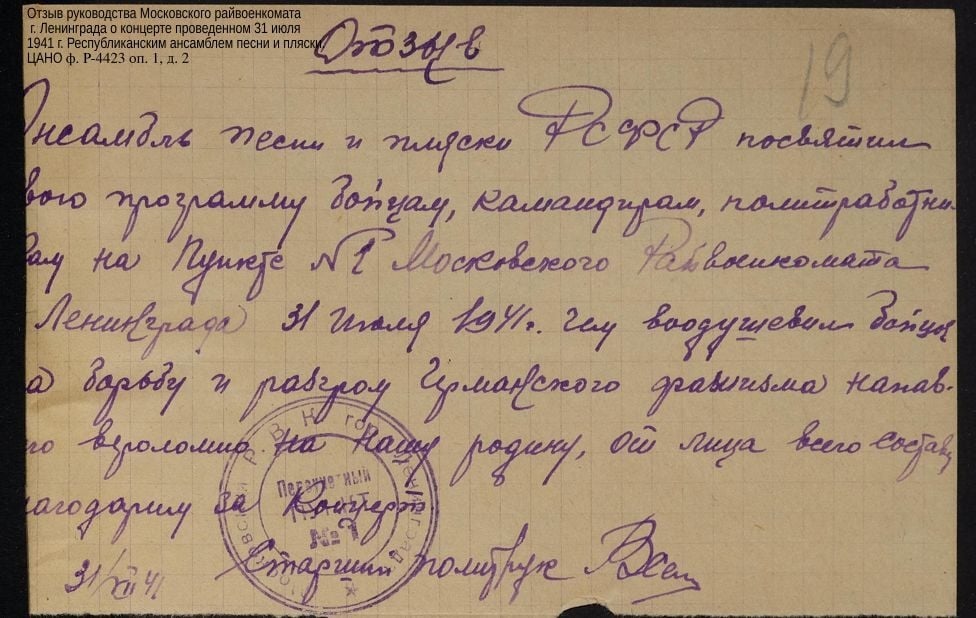 Отзыв руководства Московского райвоенкомата
г. Ленинграда о концерте проведенном 31 июля
1941 г. Республиканским ансамблем песни и пляски
ЦАНО ф. Р-4423 оп. 1, д. 2
Отзыв
19
Ансамбль песни и пляски РСФСР посвятил
вого программу бойцам, камандирам, политработни-
кам на Пункте №1 Московского Райвоенкомата
Ленинграда 31 июля 1941г. чем воодушевил бойцов
на борьбу и разгром Германского фашизма напав-
го вероломно на нашу родину, от лица всего состава
лагодарим за Концерт.
Старший политрук
31/VII 41
Московский Р. В. К. гор. Ленинграда
Пересчетный
ПУНКТ
№ 1